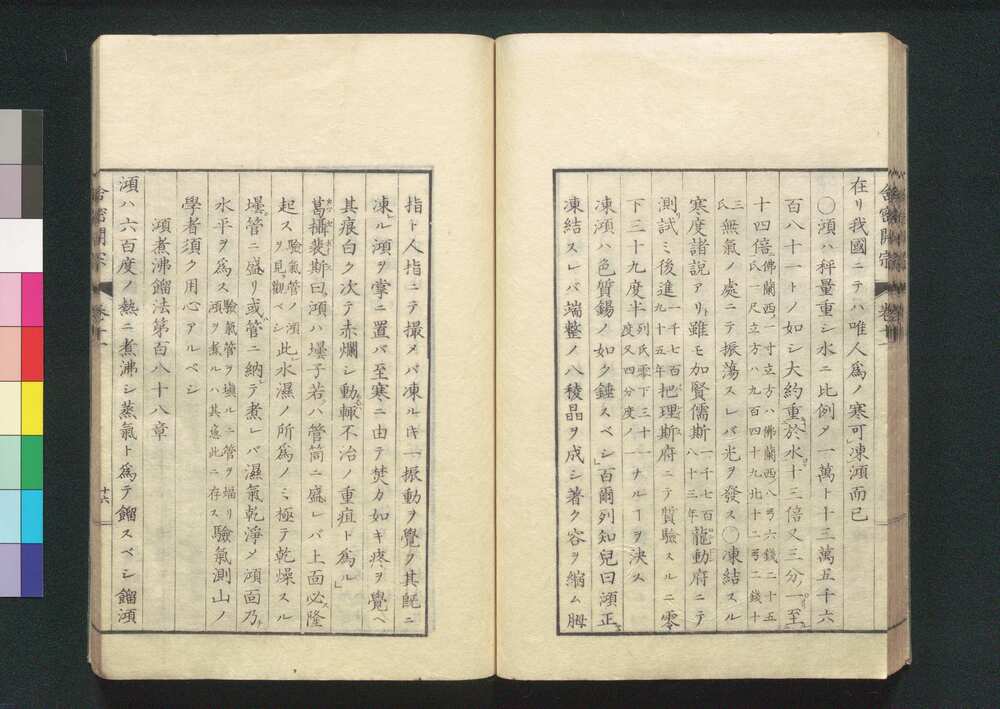 在リ我國ニテハ唯人爲ノ寒可凍澒而已
〇澒ハ秤量重シ水ニ比例メ一萬ト十三萬五千六
百八十一トノ如シ大約重於水十三倍又三分一至
十四倍佛蘭西一寸立方ハ佛蘭西八ヲ六錢二十五
氏一尺立方ハ九百四十九北十二ヲ二錢十
三
氏無氣ノ處ニテ振蕩スレバ光ヲ發ス〇凍結スル
寒度諸說アリ雖モ加賢儒斯一千七百八十三年龍動府ニテ
測試ミ後進一千七百九十五年把理斯府ニテ質驗スルニ零
下三十九度半列氏零下三十一度又四分度ノ一ナルヿヲ決ス
凍澒ハ色質錫ノ如ク錘スベシ百爾列知兒曰澒正
凍結スレバ端整ノ八稜晶ヲ成シ著ク容ヲ縮ム拇
指ト人指ニテ撮メバ凍ルキ一振動ヲ覺ク其旣ニ
凍ル澒ヲ掌ニ置バ至寒ニ由テ焚カ如キ疼ヲ覺ヘ
其痕白ク次テ赤爛シ動輒不冶ノ重疽ト爲ル
葛攝裴斯曰澒ハ壜子若ハ管筒ニ盛レバ上面必隆
起ス驗氣管ノ澒ヲ見觀ベシ此水濕ノ所爲ノミ極テ乾燥スル
壜管ニ盛リ或管ニ納テ煮レバ濕氣乾淨メ澒面乃
水平ヲ爲ス驗氣管ヲ塡ルニ管ヲ煏リ澒ヲ煮ルハ其意此ニ存ス驗氣測山ノ
學者須ク用心アルベシ
澒煮沸餾法第百八十八章
澒ハ六百度ノ熱ニ煮沸シ蒸氣ト爲テ餾スベシ餾澒
舍密開宗
卷十一
十六
舍密開宗
卷十一